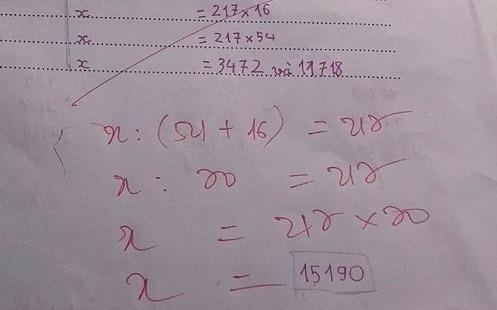 x = 217 × 16
x = 217 × 54
x = 3472 và 11718
x : (54 + 16) = 217
x : 70 = 217
x = 217 × 70
x = 15190